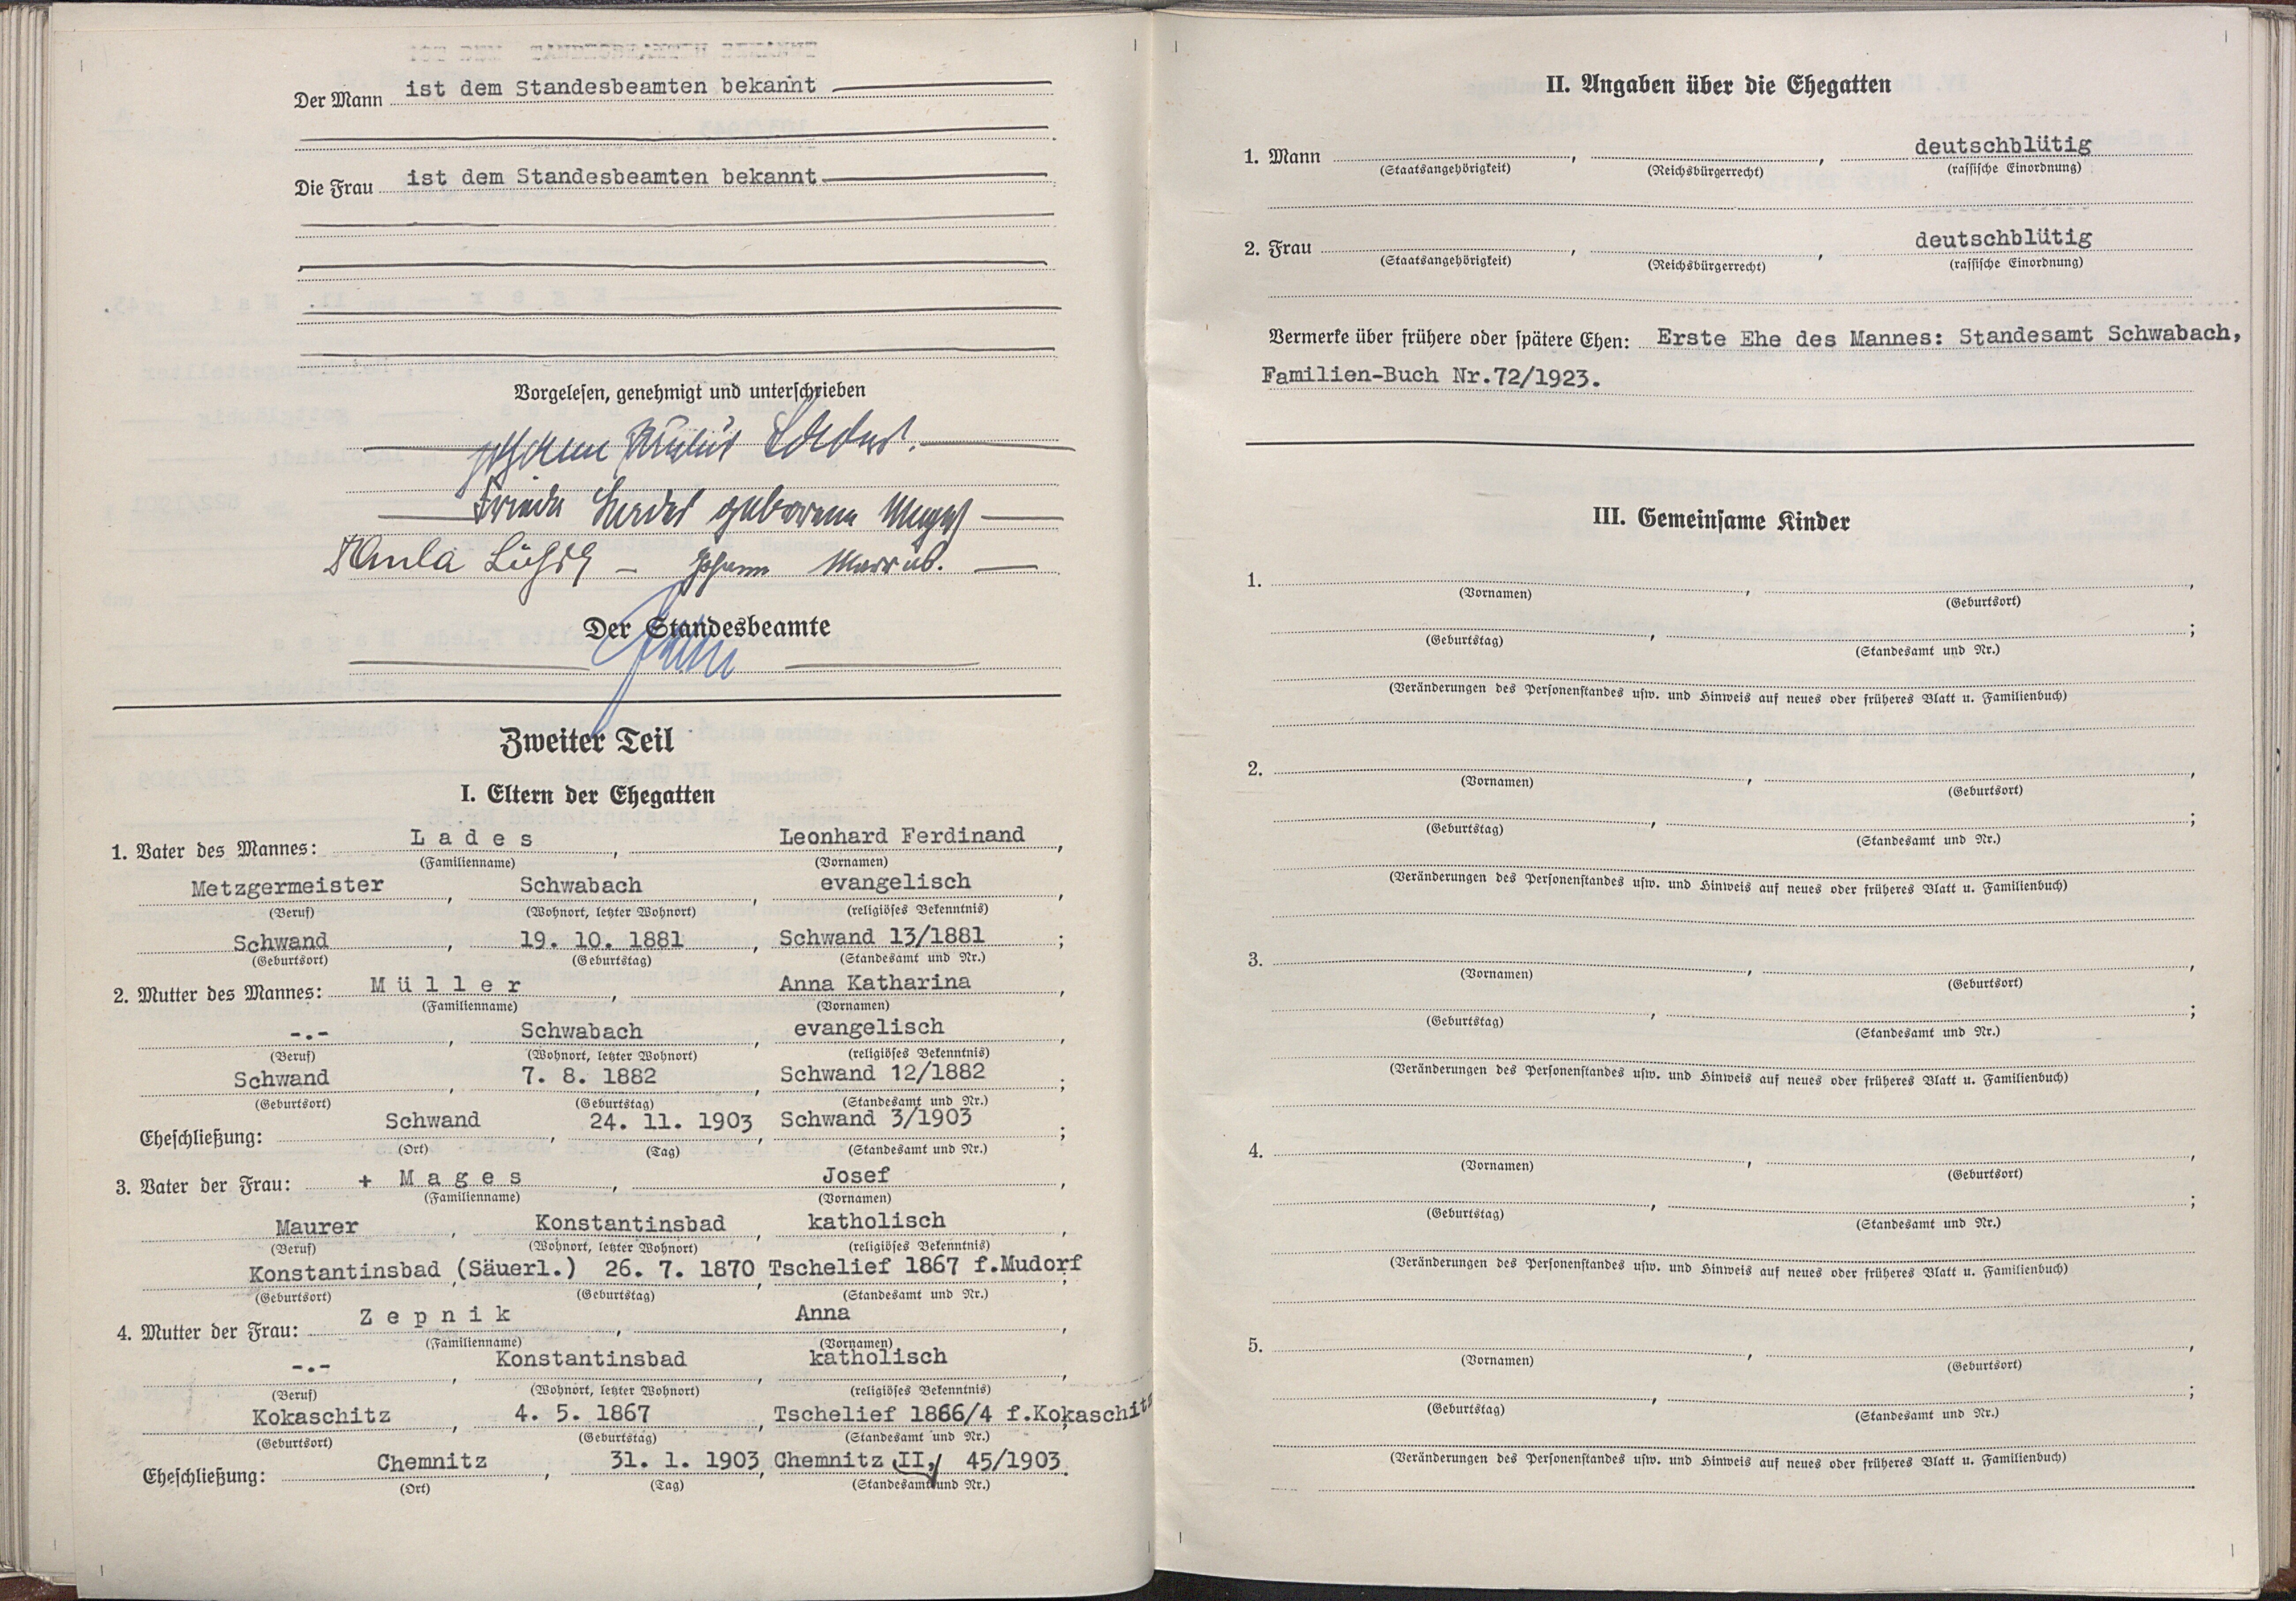 Der Mann ist dem Standesbeamten bekannt
Die Frau ist dem Standesbeamten bekannt
Vorgelesen, genehmigt und unterschrieben
Johann Lades.
Frieda Lades geborene Mages
Paula - Johann
Der Standesbeamte
Zweiter Teil
I. Eltern der Ehegatten
1. Vater des Mannes: Lades, Leonhard Ferdinand,
(Familienname) (Vornamen)
Metzgermeister, Schwabach, evangelisch,
(Beruf) (Wohnort, letzter Wohnort) (religiöses Bekenntnis)
Schwand, 19. 10. 1881, Schwand 13/1881;
(Geburtsort) (Geburtstag) (Standesamt und Nr.)
2. Mutter des Mannes: Müller, Anna Katharina,
(Familienname) (Vornamen)
-.-, Schwabach, evangelisch,
(Beruf) (Wohnort, letzter Wohnort) (religiöses Bekenntnis)
Schwand, 7. 8. 1882, Schwand 12/1882;
(Geburtsort) (Geburtstag) (Standesamt und Nr.)
Eheschließung: Schwand, 24. 11. 1903, Schwand 3/1903;
(Ort) (Tag) (Standesamt und Nr.)
3. Vater der Frau: + Mages, Josef,
(Familienname) (Vornamen)
Maurer, Konstantinsbad, katholisch,
(Beruf) (Wohnort, letzter Wohnort) (religiöses Bekenntnis)
Konstantinsbad (Säuerl.), 26. 7. 1870, Tschelief 1867 f.Mudorf;
(Geburtsort) (Geburtstag) (Standesamt und Nr.)
4. Mutter der Frau: Zepnik, Anna,
(Familienname) (Vornamen)
-.-, Konstantinsbad, katholisch,
(Beruf) (Wohnort, letzter Wohnort) (religiöses Bekenntnis)
Kokaschitz, 4. 5. 1867, Tschelief 1866/4 f.Kokaschitz;
(Geburtsort) (Geburtstag) (Standesamt und Nr.)
Eheschließung: Chemnitz, 31. 1. 1903, Chemnitz II, 45/1903.
(Ort) (Tag) (Standesamt und Nr.)
II. Angaben über die Ehegatten
1. Mann , , deutschblütig
(Staatsangehörigkeit) (Reichsbürgerrecht) (rassische Einordnung)
2. Frau , , deutschblütig
(Staatsangehörigkeit) (Reichsbürgerrecht) (rassische Einordnung)
Vermerke über frühere oder spätere Ehen: Erste Ehe des Mannes: Standesamt Schwabach,
Familien-Buch Nr.72/1923.
III. Gemeinsame Kinder
1. , ,
(Vornamen) (Geburtsort)
, ;
(Geburtstag) (Standesamt und Nr.)
(Veränderungen des Personenstandes usw. und Hinweis auf neues oder früheres Blatt u. Familienbuch)
2. , ,
(Vornamen) (Geburtsort)
, ;
(Geburtstag) (Standesamt und Nr.)
(Veränderungen des Personenstandes usw. und Hinweis auf neues oder früheres Blatt u. Familienbuch)
3. , ,
(Vornamen) (Geburtsort)
, ;
(Geburtstag) (Standesamt und Nr.)
(Veränderungen des Personenstandes usw. und Hinweis auf neues oder früheres Blatt u. Familienbuch)
4. , ,
(Vornamen) (Geburtsort)
, ;
(Geburtstag) (Standesamt und Nr.)
(Veränderungen des Personenstandes usw. und Hinweis auf neues oder früheres Blatt u. Familienbuch)
5. , ,
(Vornamen) (Geburtsort)
, ;
(Geburtstag) (Standesamt und Nr.)
(Veränderungen des Personenstandes usw. und Hinweis auf neues oder früheres Blatt u. Familienbuch)